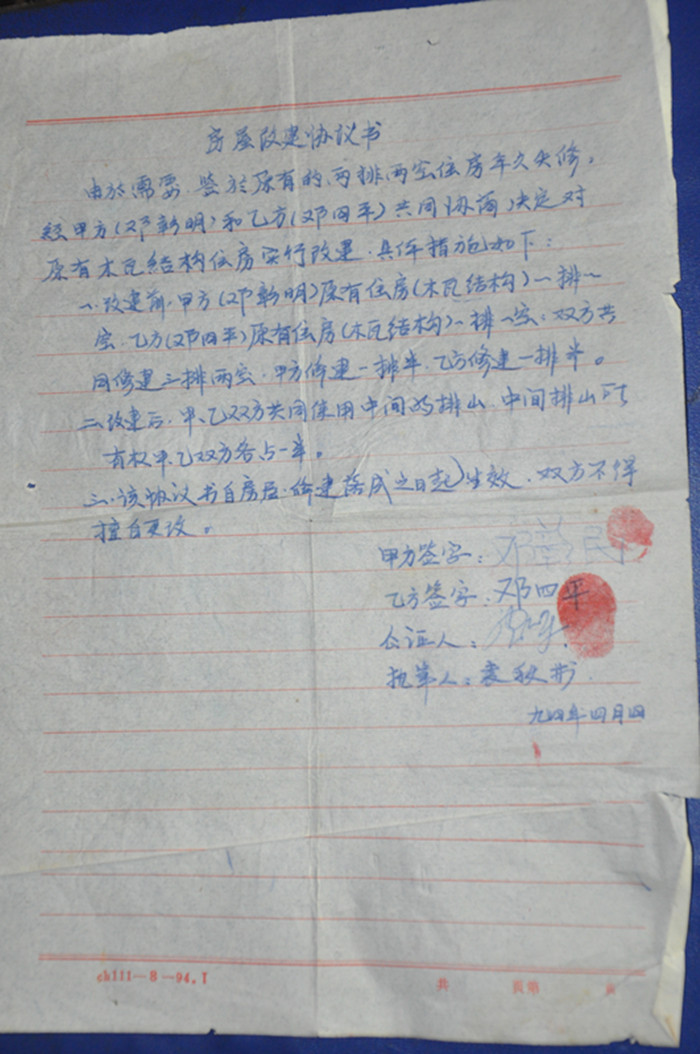 房屋改建协议书
由於需要、鉴於原有的、两排两空住房年久失修，
经甲方(邓彰明)和乙方(邓四平)共同协商，决定对
原有木瓦结构住房实行改建，具体措施如下：
一、改建前，甲方(邓彰明)原有住房(木瓦结构)一排一
空，乙方(邓四平)原有住房(木瓦结构)一排一空；双方共
同修建三排两空，甲方修建一排半，乙方修建一排半。
二、改建后，甲、乙双方共同使用中间的排山，中间排山所
有权甲、乙双方各占一半。
三、该协议书自房屋修建落成之日起生效，双方不得
擅自更改。
甲方签字：邓
乙方签字：邓四平
公证人：
执笔人：袁秋彬
九四年四月四
ch111—8—94.1
共 页第 页